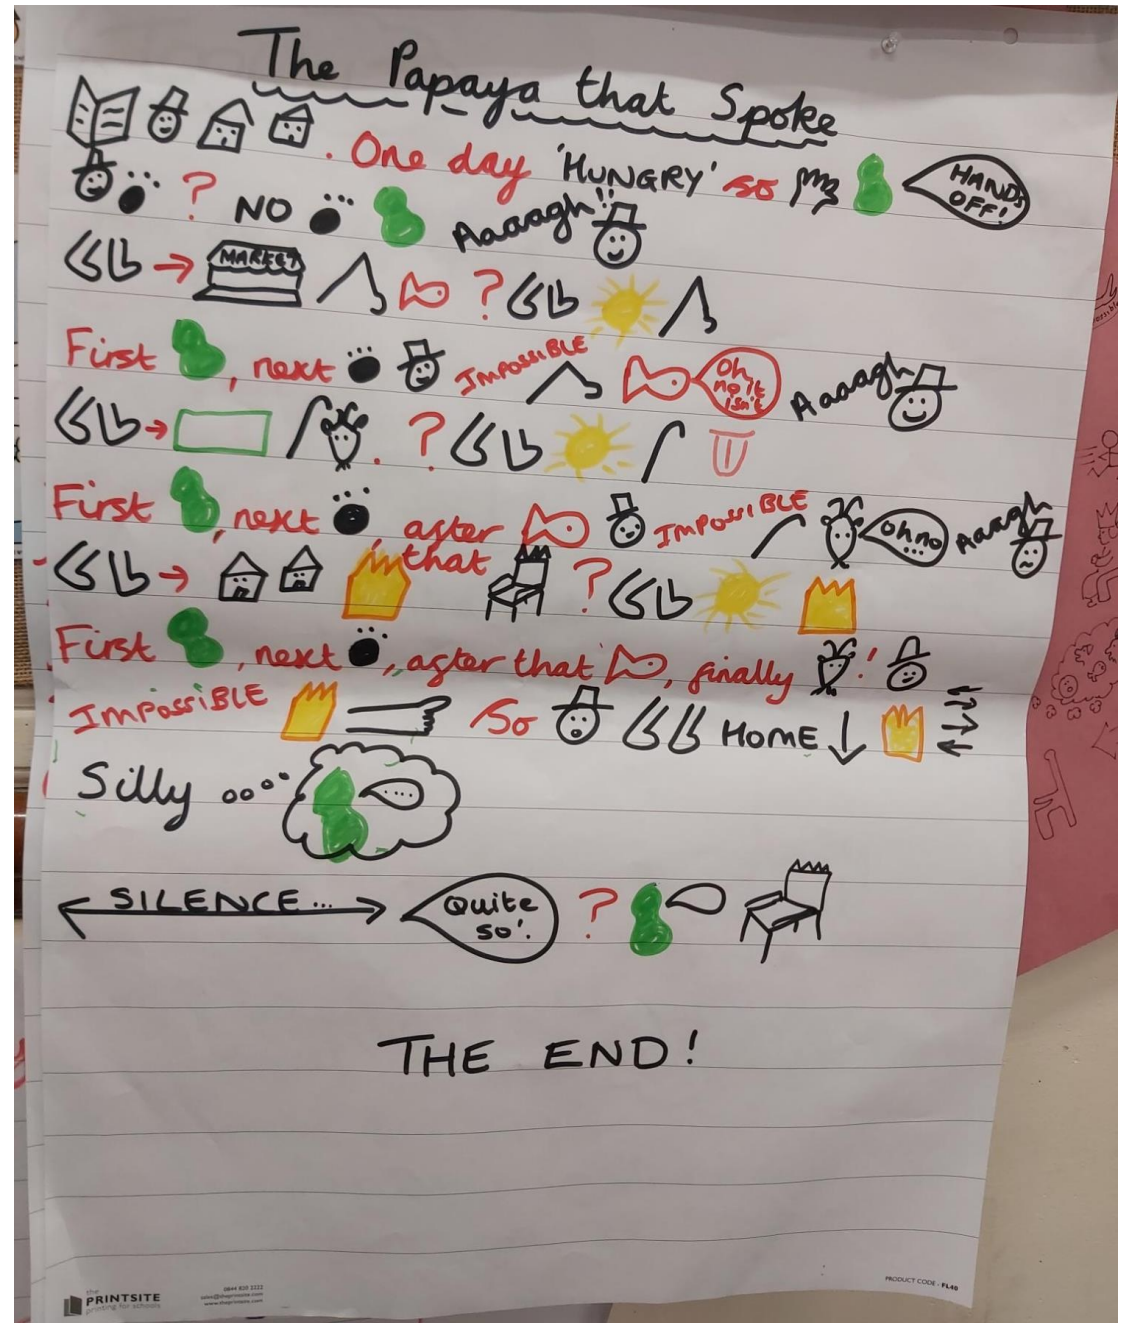 The Papaya that Spoke
. One day 'HUNGRY' so HANDS OFF!
? NO Aaaagh!!
MARKET ?
First , next IMPOSSIBLE Oh no it isn't Aaaagh
. ?
First , next , after that IMPOSSIBLE Oh no ... Aaaagh
?
First , next , after that , finally !
IMPOSSIBLE So HOME
Silly ...
SILENCE ... Quite so'. ?
THE END!
the PRINTSITE printing for schools
0844 820 2222
sales@theprintsite.com
www.theprintsite.com
PRODUCT CODE - FL40